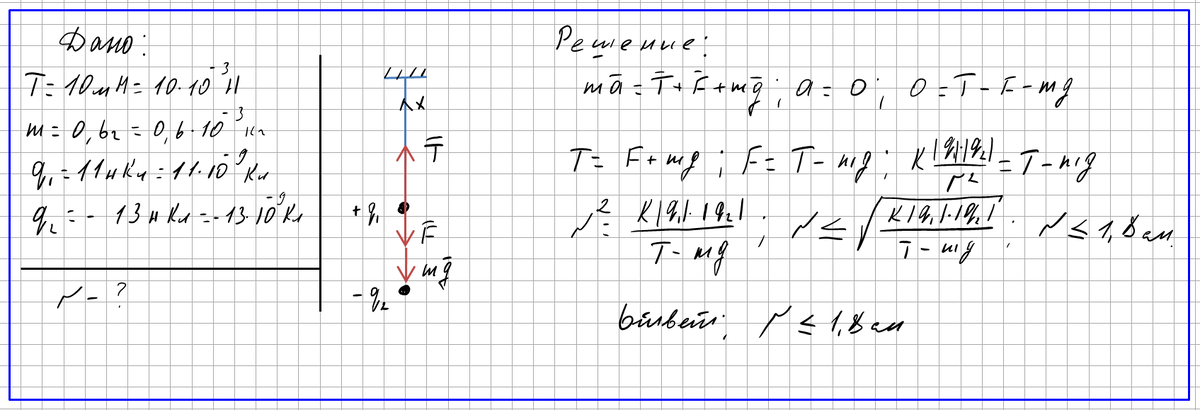 Дано:
T = 10 мН = 10·10⁻³ Н
m = 0,6 г = 0,6·10⁻³ кг
q₁ = 11 нКл = 11·10⁻⁹ Кл
q₂ = - 13 нКл = -13·10⁻⁹ Кл
r - ?
x
T̄
+q₁
F̄
mḡ
-q₂
Решение:
mā = T̄ + F̄ + mḡ ; a = 0 ; 0 = T - F - mg
T = F + mg ; F = T - mg ; K|q₁|·|q₂|/r² = T - mg
r² = K|q₁|·|q₂|/(T - mg) ; r ≤ √(K|q₁|·|q₂|/(T - mg)) ; r ≤ 1,8 см
Ответ: r ≤ 1,8 см